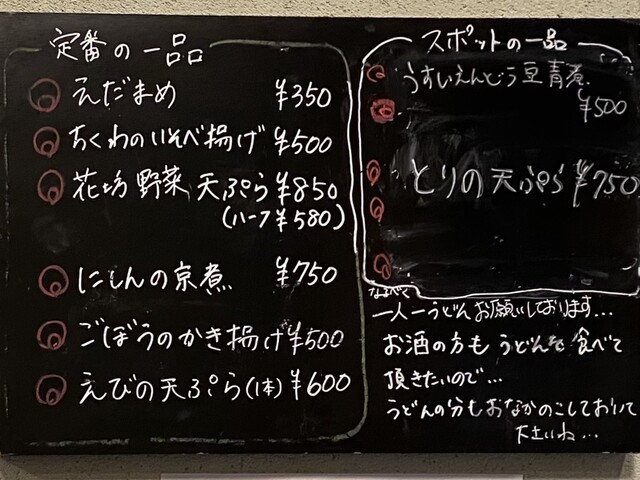 定番の一品
えだまめ ¥350
ちくわのいそべ揚げ ¥500
花坊野菜天ぷら ¥850
(ハーフ¥580)
にしんの京煮 ¥750
ごぼうのかき揚げ ¥500
えびの天ぷら(1本) ¥600
スポットの一品
うすいえんどう豆青煮
¥500
とりの天ぷら ¥750
なるべく
一人一うどんお願いしております...
お酒の方もうどんを食べて
頂きたいので...
うどんの分もおなかのこしておいて
下さいね...